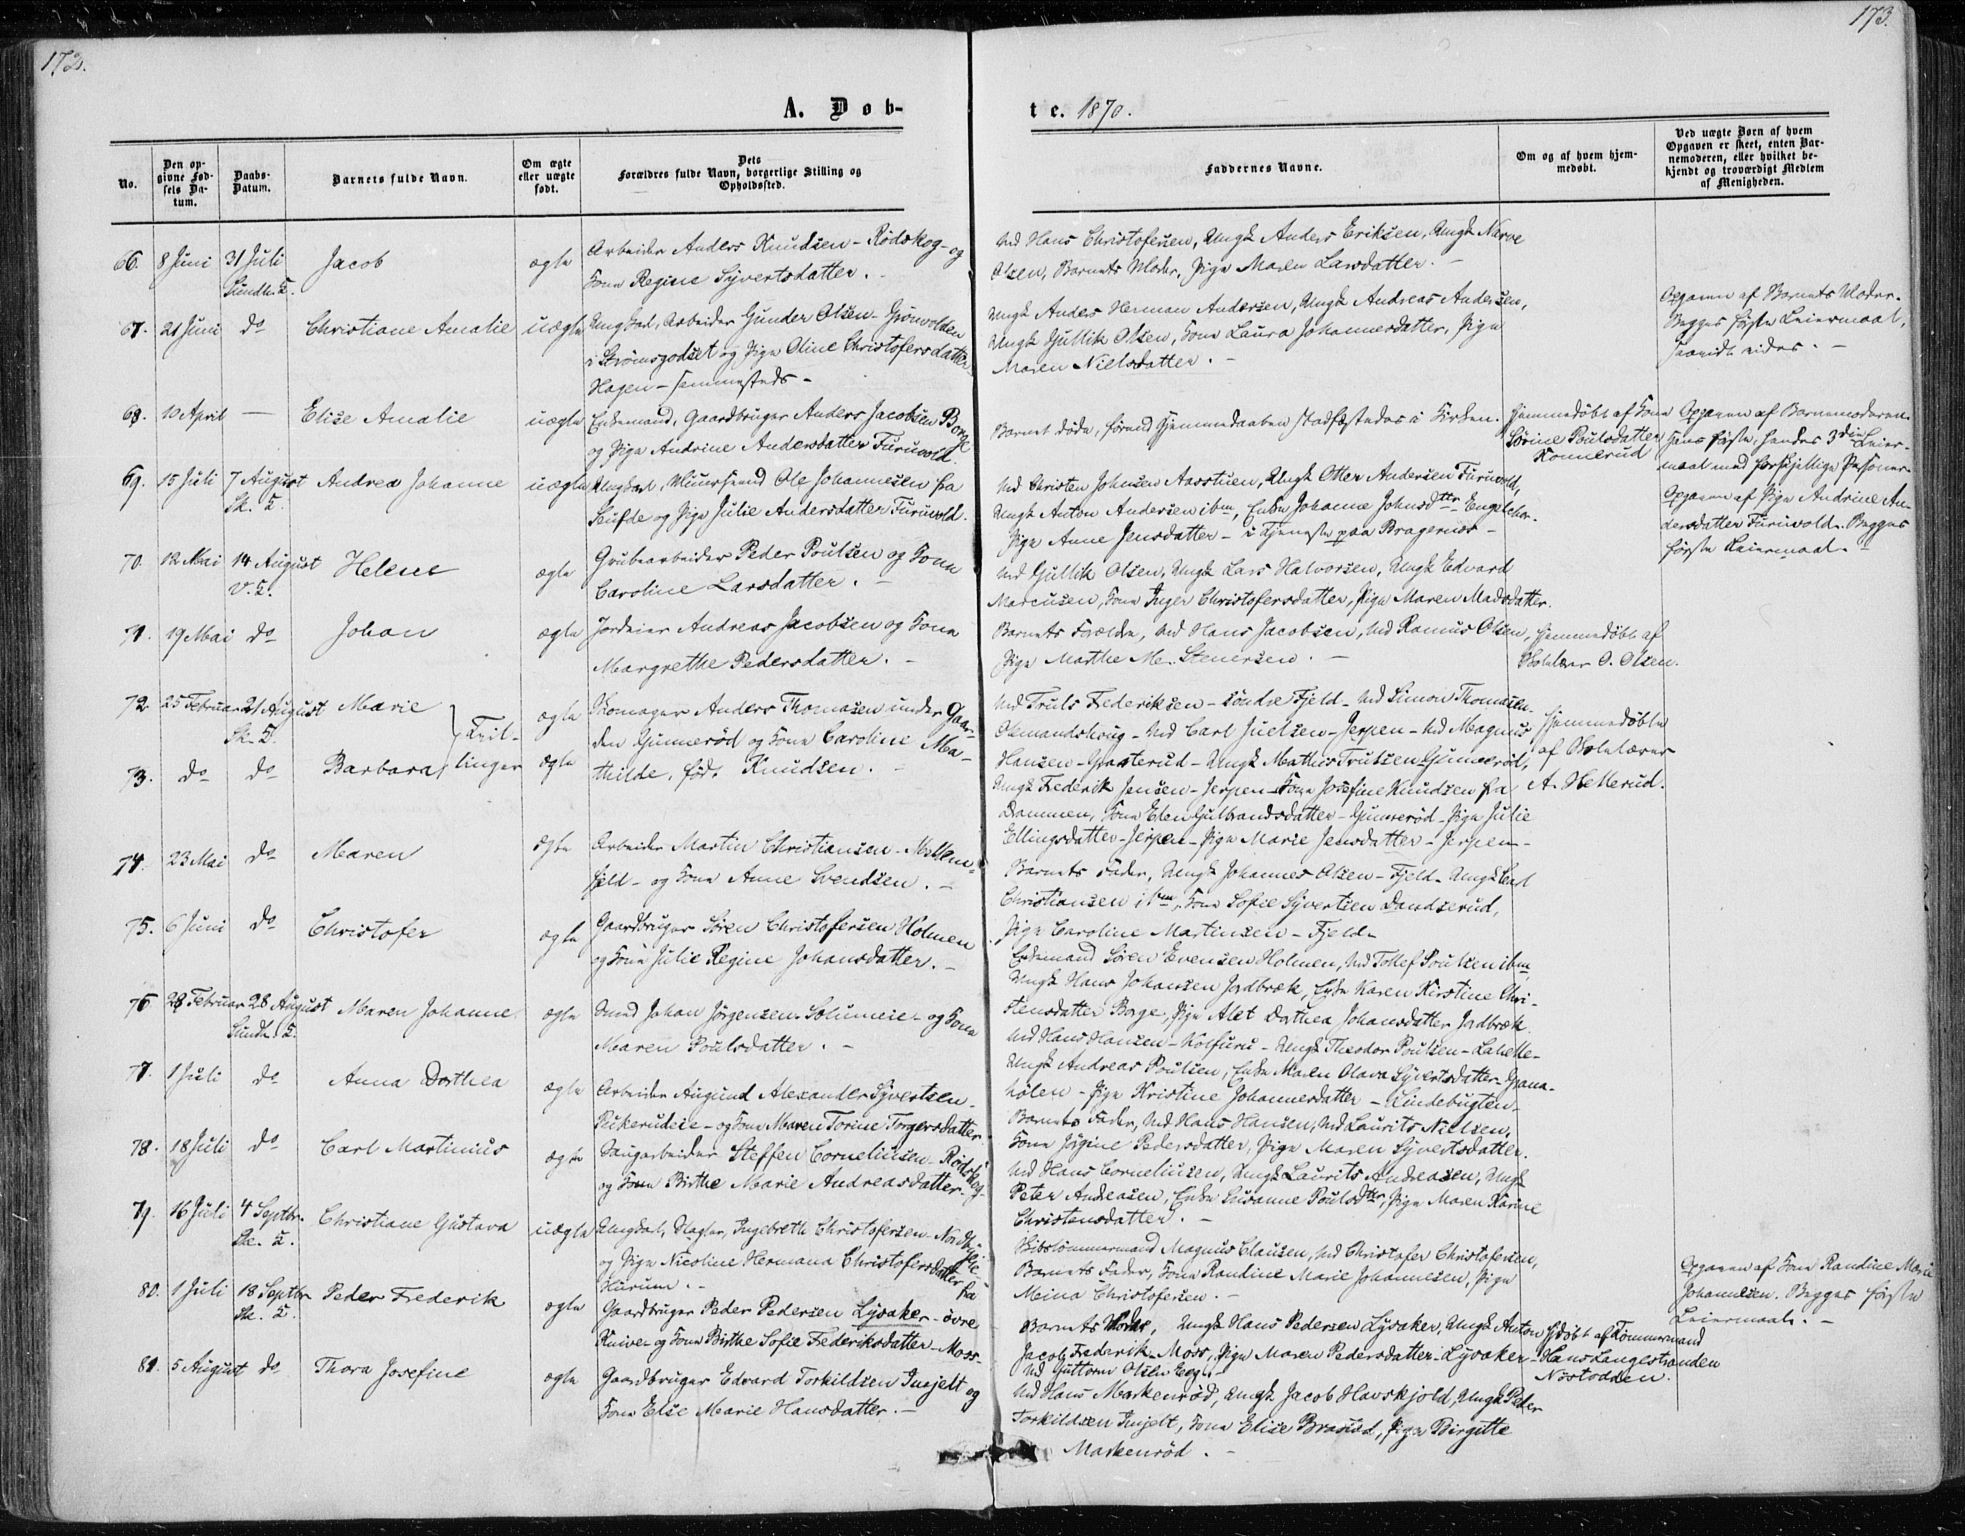 172.
173.
A. Døb-
te. 1870.
No.
Den op-
givne Fød-
sels Da-
tum.
Daabs-
Datum.
Barnets fulde Navn.
Om ægte
eller uægte
født.
Dets
Forældres fulde Navn, borgerlige Stilling og
Opholdssted.
Faddernes Navne.
Om og af hvem hjem-
medøbt.
Ved uægte Børn af hvem
Opgaven er skeet, enten Bar-
nemoderen, eller hvilket be-
kjendt og troværdigt Medlem
af Menigheden.
66. 8 Juni 31 Juli Jacob ægte Arbeider Anders Knudsen - Rødskog - og
Sundh. K. Kone Regine Syvertsdatter. -
Ud Hans Christofersen, Ungk Anders Eriksen, Ungk Narve
Olsen, Barnets Moder, Pige Maren Larsdatter. -
67. 21 Juni do Christiane Amalie uægte Ungkarl, Arbeider Gunder Olsen - Grønvolden
i Strømsgodset og Pige Oline Christofersdatter
Hagen - sammesteds -
Ungk Anders Herman Andersen, Ungk Andreas Andersen,
Ungk Gullik Olsen, Kone Laura Johannesdatter, Pige
Maren Nielsdatter. -
Opgaven af Barnets Moder.
Begges første Leiermaal,
saavidt vides. -
68. 10 April - Elise Amalie uægte Enkemand, Gaardbruger Anders Jacobsen Borge
og Pige Andrine Andersdatter Furuvold.
Barnet døde, førend Hjemmedaaben stadfæstedes i Kirken.
Hjemmedøbt af Kone
Sørine Poulsdatter
Konnerud
Opgaven af Barnemoderen.
Hans første, hendes 3die Leier-
maal med forskjellige Personer
69. 15 Juli 7 August Andrea Johanne uægte Ungkarl, Muursvend Ole Johannesen fra
Sk. K. og Pige Julie Andersdatter Furuvold.
Ud Christen Johnsen Aasstuen, Ungk Otter Andersen Furuvold,
Ungk Anton Andersen ibm, Enke Johanne Johnsdttr Engelshor.
Pige Anne Jensdatter - i Tjeneste paa Bragernæs -
Opgaven af Pige Andrine An-
dersdatter Furuvold. Begges
første Leiermaal. -
70. 12 Mai 14 August Helene ægte Grubearbeider Peder Poulsen og Kone
V. K. Caroline Larsdatter. -
Ud Gullik Olsen, Ungk Lars Halvorsen, Ungk Edvard
Marcusen, Kone Inger Christofersdatter, Pige Maren Madsdatter.
71. 19 Mai do Johan ægte Jordeier Andreas Jacobsen og Kone
Margrethe Pedersdatter. -
Barnets Forældre, Ud Hans Jacobsen, Ud Ramus Olsen,
Pige Marthe Me. Stenersen. -
Hjemmedøbt af
Skolelærer O. Olsen.
72. 25 Februar 21 August Marie Tvil- ægte Skomager Anders Thomasen under Gaar-
Sk. K. den Gunnerød og Kone Caroline Ma-
73. do do Barbara linger ægte thilde, fød. Knudsen. -
Ud Truls Frederiksen - søndre Fjeld - Ud Simon Thomasen
Ud Carl Juelsen - Jerpen - Ud Magnus
Hansen - Ungk Mathis Trulsen Gunnerød,
Ungk Frederik Jensen - Jerpen - Kone Josefine Knudsen fra
Drammen, Kone Elen Gulbrandsdatter - Gunnerød - Pige Julie
Ellingsdatter - Jerpen - Pige Marie Jensdatter - Jerpen -
Hjemmedøbte
af Skolelærer
A. Hellerud.
74. 23 Mai do Maren ægte Arbeider Martin Christiansen - Mellem-
fjeld - og Kone Anne Svendsen. -
Barnets Fader, Ungk Johannes Olsen - Fjeld - Ungk Carl
Christiansen ibm, Kone Sofie Syvertsen Dandserud,
Pige Caroline Martinsen - Fjeld -
75. 6 Juni do Christofer ægte Gaardbruger Søren Christofersen Holmen
og Kone Julie Regine Johansdatter. -
Enkemand Søren Evensen Holmen, Ud Tollef Poulsen ibm,
Ungk Hans Johansen Jordbræk, Enke Karen Kirstine Chri-
stensdatter Borge, Pige Alet Dorthea Johansdatter Jordbræk.
76. 28 Februar 28 August Maren Johanne ægte Smed Johan Jørgensen - Solumeie - og Kone
Sundh. K. Maren Poulsdatter. -
Ud Hans Hansen - Kolfuru - Ungk Theodor Poulsen -
Ungk Andreas Poulsen, Enke Maren Olava Syvertsdatter - Grana-
hølen - Pige Kristine Johannesdatter - Lindebugten -
77. 1 Juli do Anna Dorthea ægte Arbeider August Alexander Syvertsen -
og Kone Maren Torine Torgersdatter.
Barnets Fader, Ud Hans Hansen, Ud Laurits Nielsen,
Kone Jøgine Pedersdatter, Pige Maren Syvertsdatter.
78. 18 Juli do Carl Martinius ægte Saugarbeider Steffen Corneliusen - Rødskog -
og Kone Birthe Marie Andreasdatter. -
Ud Hans Corneliusen, Ungk Laurits Andreasen, Ungk
Peter Andreasen, Enke Susanne Poulsdttr, Pige Maren Karine
Christensdatter. -
79. 16 Juli 4 Septbr. Christiane Gustava uægte Ungkarl, Slagter, Ingebreth Christofersen -
Sk. K. og Pige Nicoline Hermana Christofersdatter fra
Hurum. -
Skibstømmermand Magnus Clausen, Ud Christofer Christofersen,
Barnets Fader, Kone Randine Marie Johannesen, Pige
Meina Christofersen. -
Opgaven af Kone Randine Marie
Johannesen. Begges første
Leiermaal. -
80. 1 Juli 18 Septbr Peder Frederik ægte Gaardbruger Peder Pedersen Lysaker - øvre
Sk. K. Knive og Kone Birthe Sofie Frederiksdatter - Moss -
Barnets Moder, Ungk Hans Pedersen Lysaker, Ungk Anton
Jacob Frederik Moss, Pige Maren Pedersdatter - Lysaker -
Ud Guttorm Olsen Eeg. -
Hjdøbt af Tømmermand
Hans Langestranden
Nøstodden.
81. 5 August do Thora Josefine ægte Gaardbruger Edvard Torkildsen Insjelt og
Kone Else Marie Hansdatter. -
Ud Hans Markenrød, Ungk Jacob Havskjold, Ungk Peder
Torkildsen Insjelt, Kone Elise Brarud, Pige Birgitte
Markenrød. -